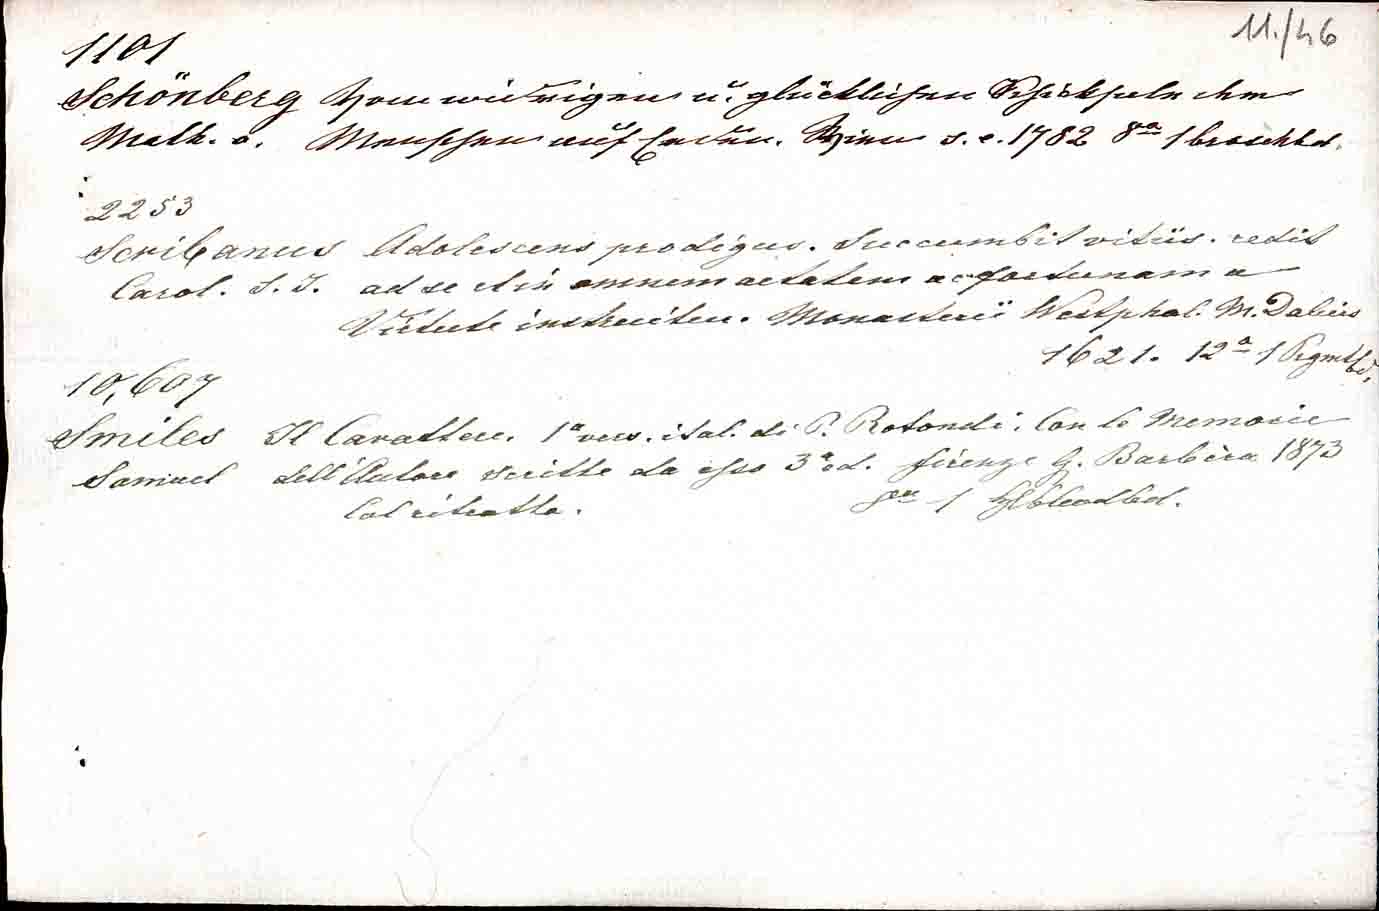 11./46
1101
Schönberg Vom widrigen u. glücklichen Schicksale dem
Math. a. Menschen auf Erden. Wien s. e. 1782 8va 1 broschbd.
2253
Scribanus Adolescens prodigus. Succumbit vitiis. redit
Carol. S. J. ad se et in omnem aetatem ac fortunam a
Virtute instruitur. Monasterii Westphal. M. Dalius
1621. 12a 1 Pgmtbd.
10,607
Smiles Il Carattere. 1a vers. ital. di P. Rotondi. Con le Memorie
Samuel dell'Autore scritte da esso 3a ed. Firenze G. Barbèra 1873
Col ritratto. 8va 1 Hlbleadbd.